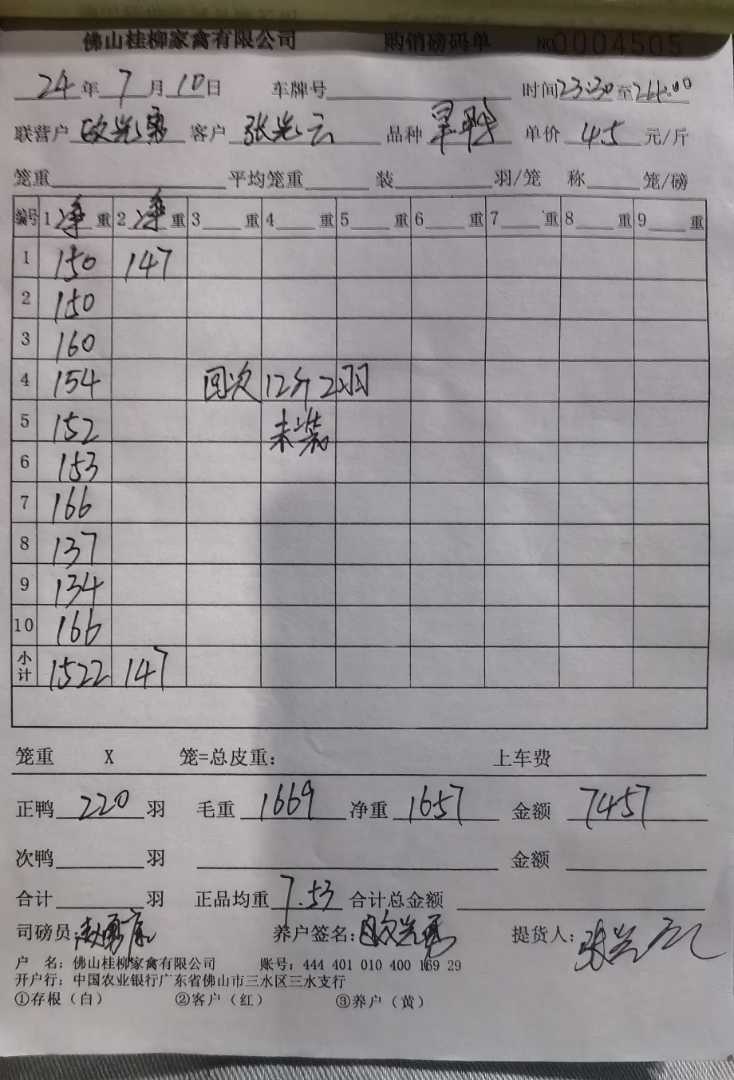 佛山桂柳家禽有限公司 购销磅码单 №0004505
24年7月10日 车牌号 时间23:30至24:00
联营户 欧光勇 客户 张光云 品种 单价 4.5 元/斤
笼重 平均笼重 装 羽/笼 称 笼/磅
编号 1净重 2净重 3 重 4 重 5 重 6 重 7 重 8 重 9 重
1 150 147
2 150
3 160
4 154 回次12斤2羽
5 152 未装
6 153
7 166
8 137
9 134
10 166
小计 1522 147
笼重 X 笼=总皮重: 上车费
正鸭 220 羽 毛重 1669 净重 1657 金额 7457
次鸭 羽 金额
合计 羽 正品均重 7.53 合计总金额
司磅员: 养户签名:欧光勇 提货人:张光云
户 名:佛山桂柳家禽有限公司 账号:444 401 010 400 169 29
开户行:中国农业银行广东省佛山市三水区三水支行
①存根(白) ②客户(红) ③养户(黄)